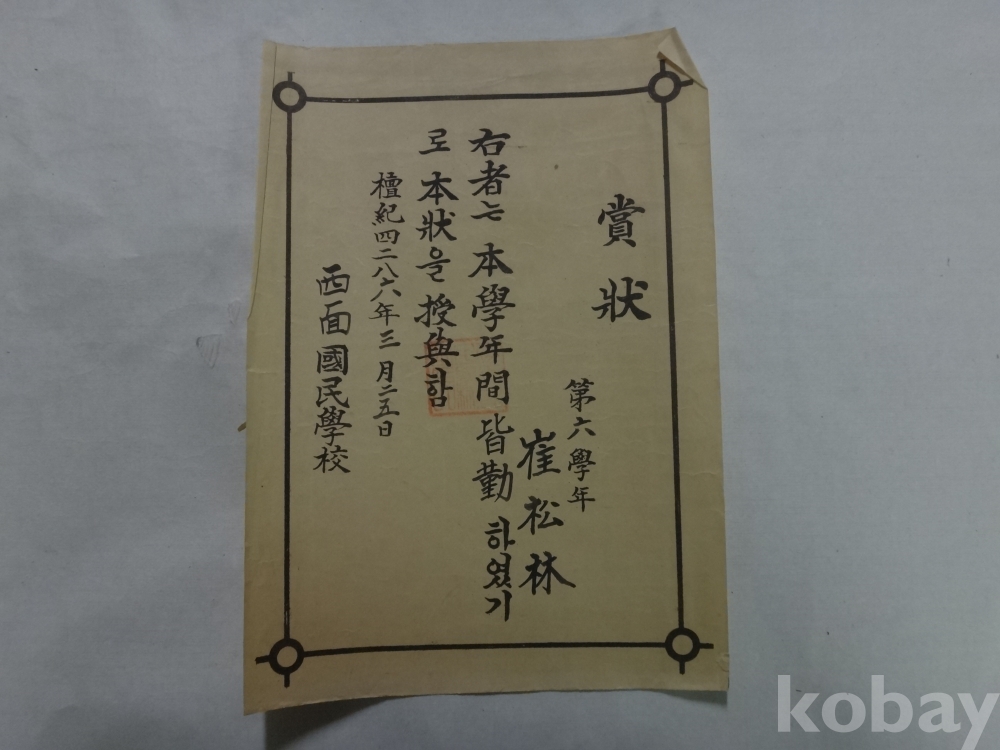 賞狀
第六學年
崔松林
右者는 本學年間 皆勤 하였기
로 本狀을 授與함
檀紀四二八六年三月二五日
西面國民學校
kobay